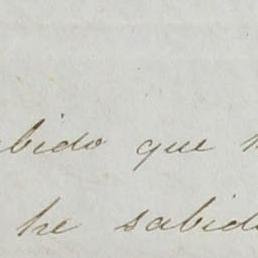 bido que h
he sabido